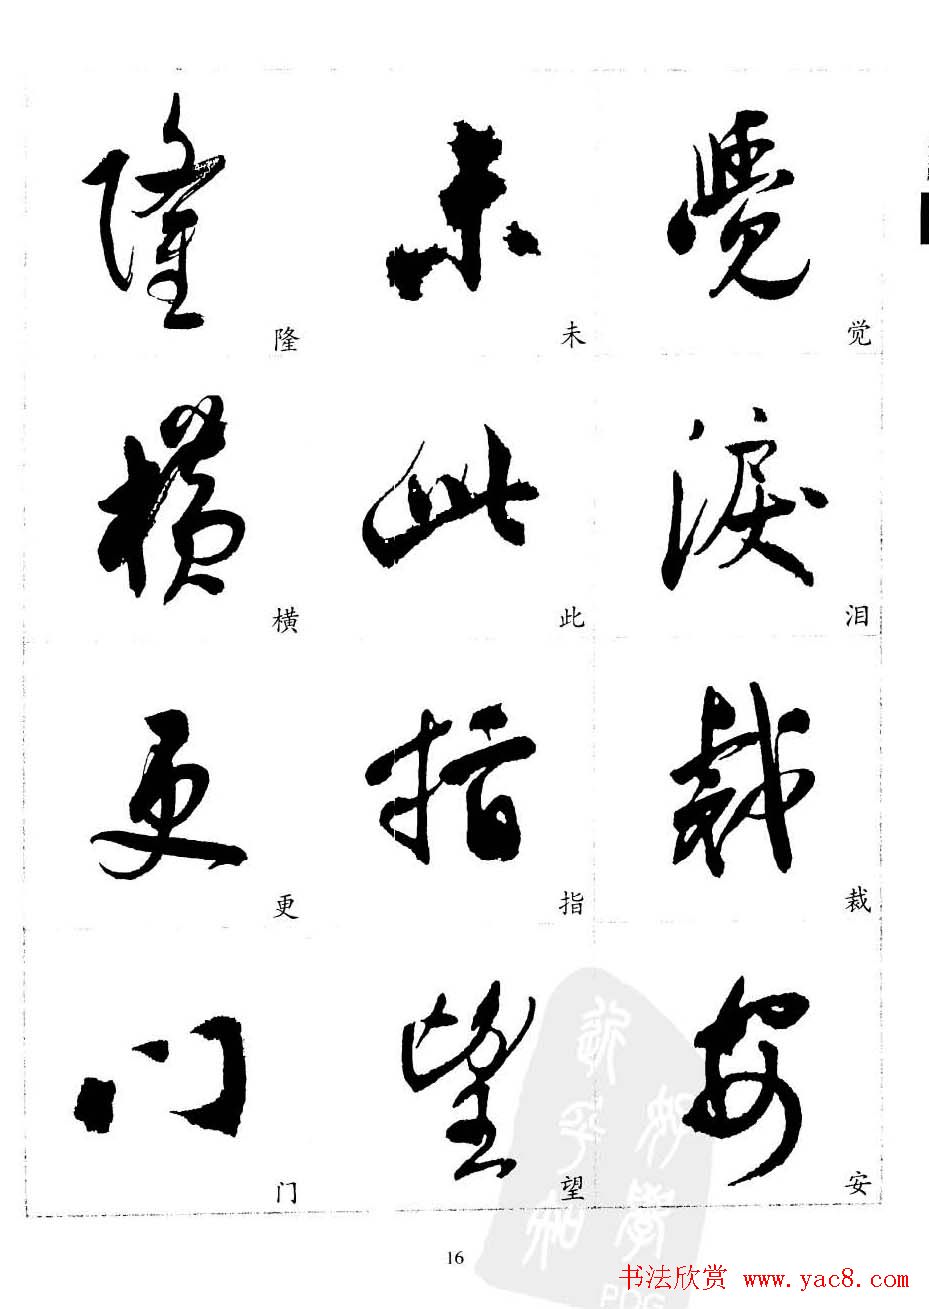 隆 未 觉
横 此 泪
更 指 裁
门 望 安
16
书法欣赏 www.yac8.com